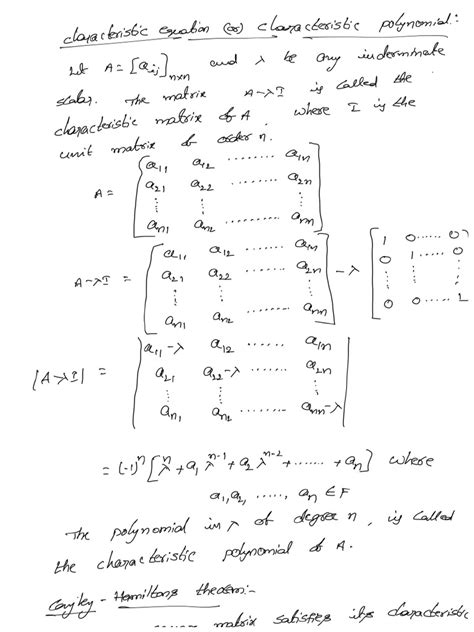 characteristic equation (or) characteristic polynomial:
Let A = [aij]n×n and λ be any inderminate
scalar. The matrix A-λI is called the
characteristic matrix of A, where I is the
unit matrix of order n.
A = [ a11 a12 ........ a1n
a21 a22 ........ a2n
⋮ ⋮ ⋮
an1 an2 ........ ann ]
A-λI = [ a11 a12 ........ a1n
a21 a22 ........ a2n
⋮ ⋮ ⋮
an1 an2 ........ ann ] - λ [ 1 0 ...... 0
0 1 ..... 0
⋮ ⋮ ⋮
0 0 ..... 1
|A-λI| = | a11-λ a12 ...... a1n
a21 a22-λ ...... a2n
⋮ ⋮ ⋮
an1 an2 ........ ann-λ |
= (-1)^n [λ^n + a1 λ^n-1 + a2 λ^n-2 + ...... + an] where
a1, a2, ....., an ∈ F
The polynomial in λ of degree n, is called
the characteristic polynomial of A.
Cayley - Hamiltons theorem:-
matrix satisfies its characteristic